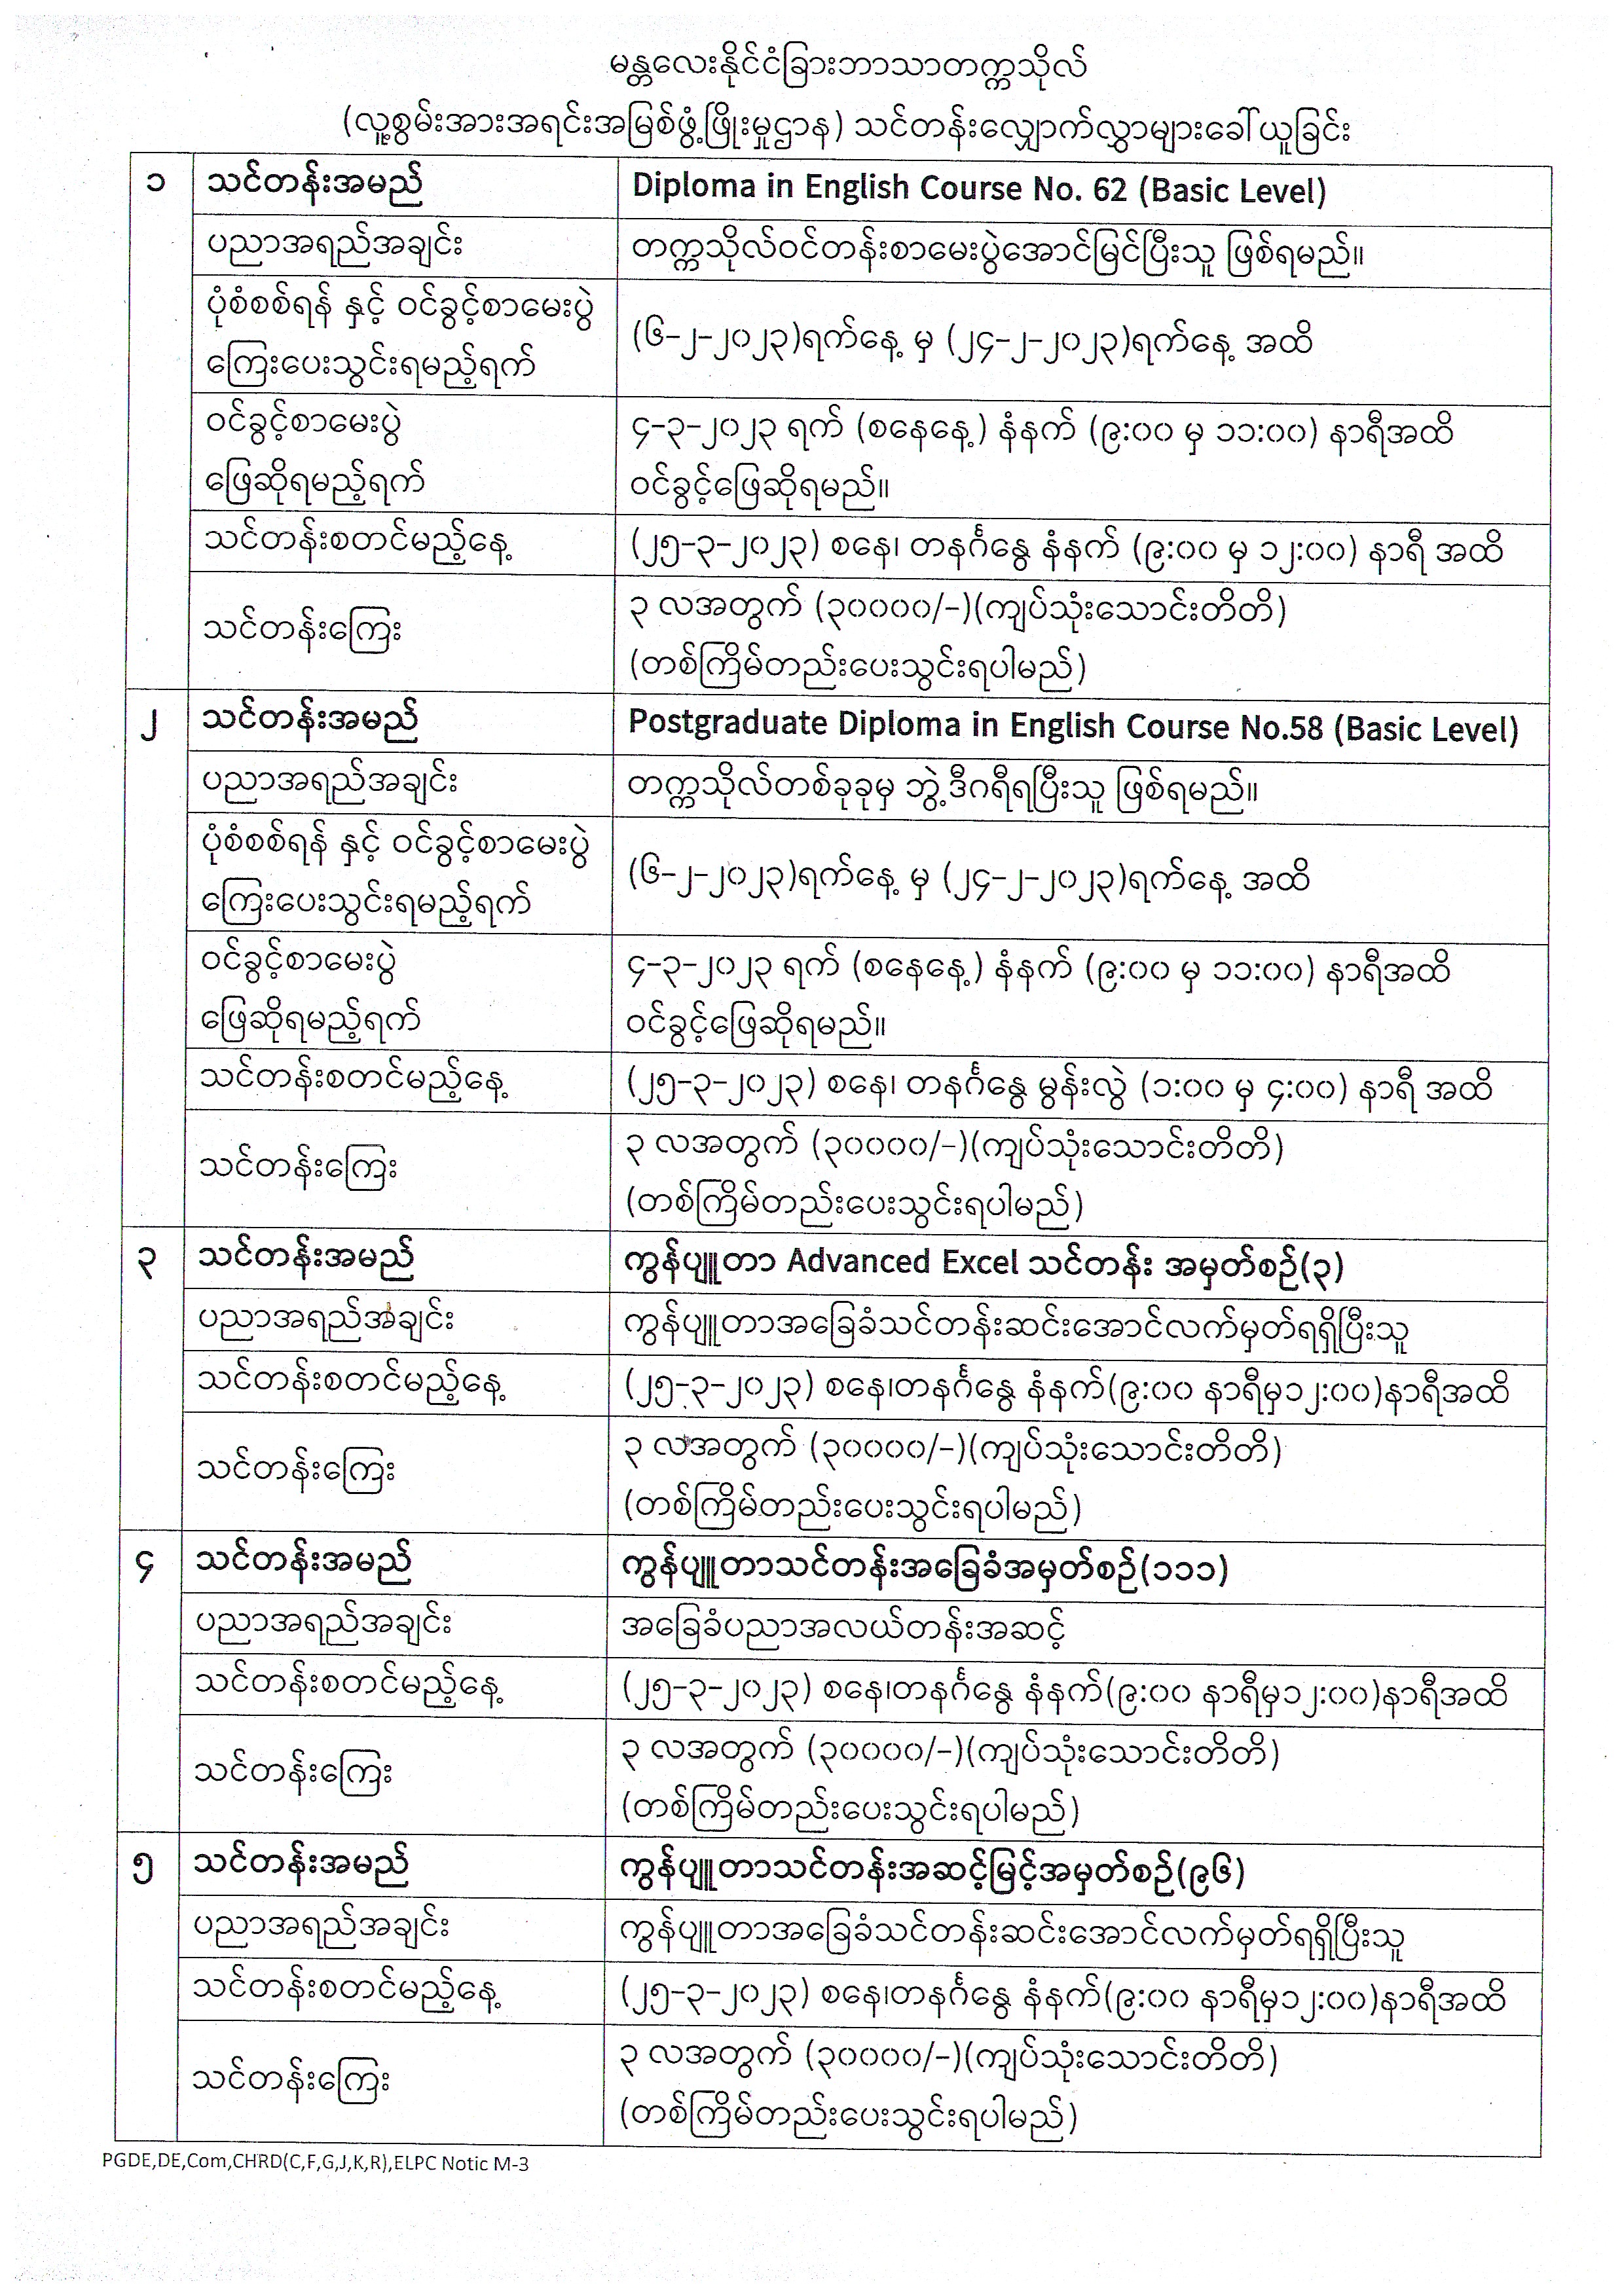 မန္တလေးနိုင်ငံခြားဘာသာတက္ကသိုလ်
(လူ့စွမ်းအားအရင်းအမြစ်ဖွံ့ဖြိုးမှုဌာန) သင်တန်းလျှောက်လွှာများခေါ်ယူခြင်း
၁ သင်တန်းအမည် Diploma in English Course No. 62 (Basic Level)
ပညာအရည်အချင်း တက္ကသိုလ်ဝင်တန်းစာမေးပွဲအောင်မြင်ပြီးသူ ဖြစ်ရမည်။
ပုံစံစစ်ရန် နှင့် ဝင်ခွင့်စာမေးပွဲ
ကြေးပေးသွင်းရမည့်ရက် (၆-၂-၂၀၂၃)ရက်နေ့ မှ (၂၄-၂-၂၀၂၃)ရက်နေ့ အထိ
ဝင်ခွင့်စာမေးပွဲ ၄-၃-၂၀၂၃ ရက် (စနေနေ့) နံနက် (၉:၀၀ မှ ၁၁:၀၀) နာရီအထိ
ဖြေဆိုရမည့်ရက် ဝင်ခွင့်ဖြေဆိုရမည်။
သင်တန်းစတင်မည့်နေ့ (၂၅-၃-၂၀၂၃) စနေ၊ တနင်္ဂနွေ နံနက် (၉:၀၀ မှ ၁၂:၀၀) နာရီ အထိ
သင်တန်းကြေး ၃ လအတွက် (၃၀၀၀၀/-)(ကျပ်သုံးသောင်းတိတိ)
(တစ်ကြိမ်တည်းပေးသွင်းရပါမည်)
၂ သင်တန်းအမည် Postgraduate Diploma in English Course No.58 (Basic Level)
ပညာအရည်အချင်း တက္ကသိုလ်တစ်ခုခုမှ ဘွဲ့ဒီဂရီရပြီးသူ ဖြစ်ရမည်။
ပုံစံစစ်ရန် နှင့် ဝင်ခွင့်စာမေးပွဲ
ကြေးပေးသွင်းရမည့်ရက် (၆-၂-၂၀၂၃)ရက်နေ့ မှ (၂၄-၂-၂၀၂၃)ရက်နေ့ အထိ
ဝင်ခွင့်စာမေးပွဲ ၄-၃-၂၀၂၃ ရက် (စနေနေ့) နံနက် (၉:၀၀ မှ ၁၁:၀၀) နာရီအထိ
ဖြေဆိုရမည့်ရက် ဝင်ခွင့်ဖြေဆိုရမည်။
သင်တန်းစတင်မည့်နေ့ (၂၅-၃-၂၀၂၃) စနေ၊ တနင်္ဂနွေ မွန်းလွဲ (၁:၀၀ မှ ၄:၀၀) နာရီ အထိ
သင်တန်းကြေး ၃ လအတွက် (၃၀၀၀၀/-)(ကျပ်သုံးသောင်းတိတိ)
(တစ်ကြိမ်တည်းပေးသွင်းရပါမည်)
၃ သင်တန်းအမည် ကွန်ပျူတာ Advanced Excel သင်တန်း အမှတ်စဉ်(၃)
ပညာအရည်အချင်း ကွန်ပျူတာအခြေခံသင်တန်းဆင်းအောင်လက်မှတ်ရရှိပြီးသူ
သင်တန်းစတင်မည့်နေ့ (၂၅-၃-၂၀၂၃) စနေ၊တနင်္ဂနွေ နံနက်(၉:၀၀ နာရီမှ၁၂:၀၀)နာရီအထိ
သင်တန်းကြေး ၃ လအတွက် (၃၀၀၀၀/-)(ကျပ်သုံးသောင်းတိတိ)
(တစ်ကြိမ်တည်းပေးသွင်းရပါမည်)
၄ သင်တန်းအမည် ကွန်ပျူတာသင်တန်းအခြေခံအမှတ်စဉ်(၁၁၁)
ပညာအရည်အချင်း အခြေခံပညာအလယ်တန်းအဆင့်
သင်တန်းစတင်မည့်နေ့ (၂၅-၃-၂၀၂၃) စနေ၊တနင်္ဂနွေ နံနက်(၉:၀၀ နာရီမှ၁၂:၀၀)နာရီအထိ
သင်တန်းကြေး ၃ လအတွက် (၃၀၀၀၀/-)(ကျပ်သုံးသောင်းတိတိ)
(တစ်ကြိမ်တည်းပေးသွင်းရပါမည်)
၅ သင်တန်းအမည် ကွန်ပျူတာသင်တန်းအဆင့်မြင့်အမှတ်စဉ်(၉၆)
ပညာအရည်အချင်း ကွန်ပျူတာအခြေခံသင်တန်းဆင်းအောင်လက်မှတ်ရရှိပြီးသူ
သင်တန်းစတင်မည့်နေ့ (၂၅-၃-၂၀၂၃) စနေ၊တနင်္ဂနွေ နံနက်(၉:၀၀ နာရီမှ၁၂:၀၀)နာရီအထိ
သင်တန်းကြေး ၃ လအတွက် (၃၀၀၀၀/-)(ကျပ်သုံးသောင်းတိတိ)
(တစ်ကြိမ်တည်းပေးသွင်းရပါမည်)
PGDE,DE,Com,CHRD(C,F,G,J,K,R),ELPC Notic M-3